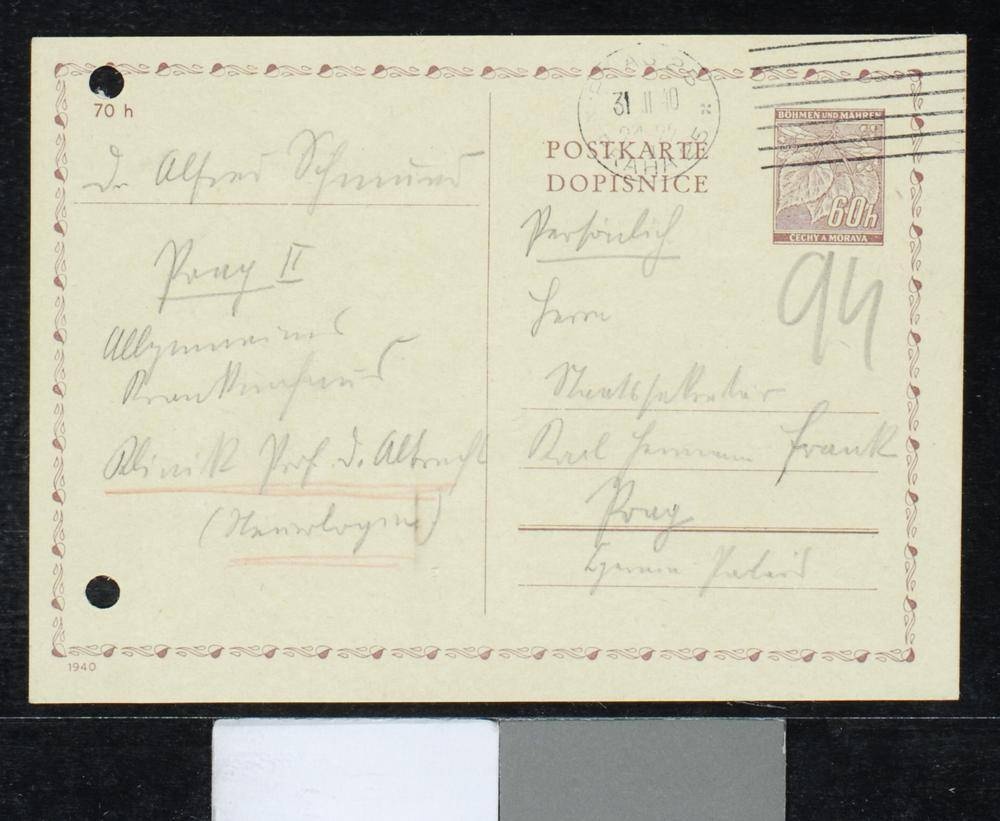 70 h
Dr Alfred
Prag II
Allgemeines
Krankenhaus
Klinik Prof. D. Albrecht
(Neurologie)
1940
31 II 40
POSTKARTE
DOPISNICE
BÖHMEN UND MÄHREN
60h
ČECHY A MORAVA
Persönlich
Herrn
Staatssekretär
Karl Hermann Frank
Prag
Czernin Palais